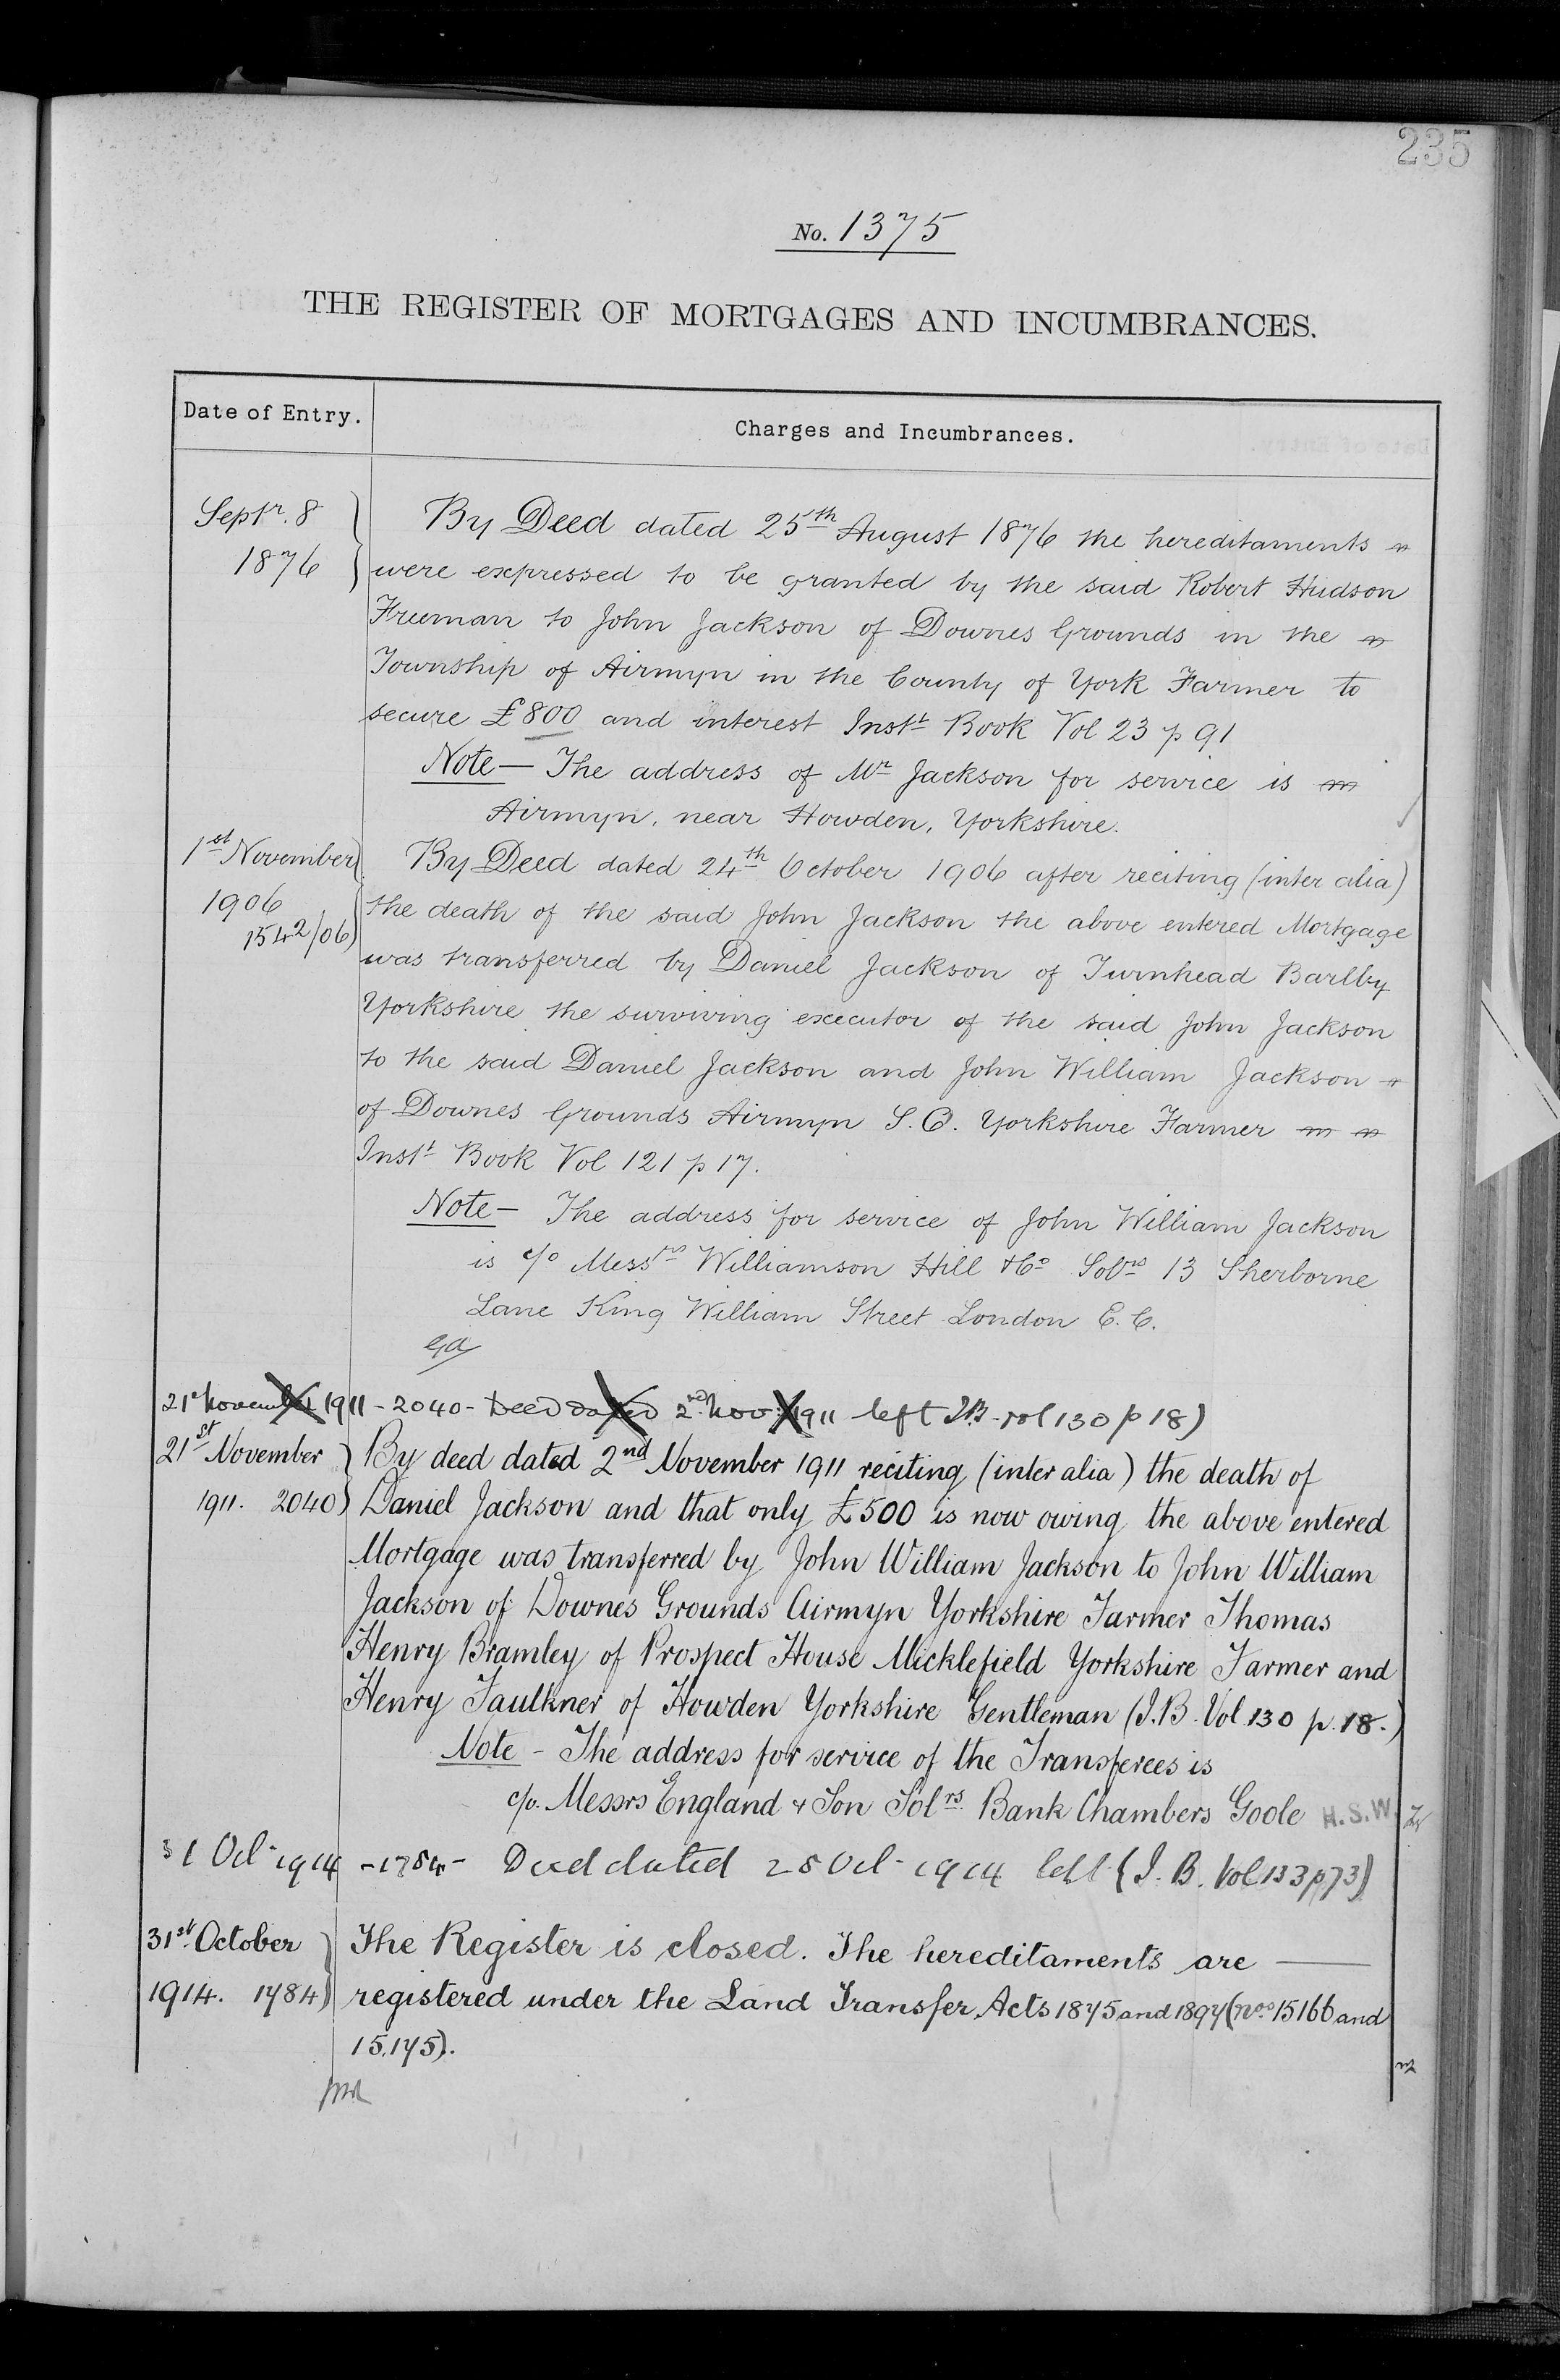 235
No. 1375
THE REGISTER OF MORTGAGES AND INCUMBRANCES.
Date of Entry.
Charges and Incumbrances.
Septr. 8
1876
By Deed dated 25th August 1876 the hereditaments
were expressed to be granted by the said Robert Hudson
Freeman to John Jackson of Downes Grounds in the
Township of Airmyn in the County of York Farmer to
secure £800 and interest Instt Book Vol 23 p 91
Note — The address of Mr Jackson for service is
Airmyn, near Howden, Yorkshire.
1st November
1906
1542/06
By Deed dated 24th October 1906 after reciting (inter alia)
the death of the said John Jackson the above entered Mortgage
was transferred by Daniel Jackson of Turnhead Barlby
Yorkshire the surviving executor of the said John Jackson
to the said Daniel Jackson and John William Jackson
of Downes Grounds Airmyn S.O. Yorkshire Farmer
Instt Book Vol 121 p 17.
Note — The address for service of John William Jackson
is c/o Messrs Williamson Hill & Co Solrs 13 Sherborne
Lane King William Street London E.C.
21st November 1911 - 2040 - Deed dated 2nd Nov: 1911 left I.B. vol 130 p 18)
21st November
1911. 2040
By deed dated 2nd November 1911 reciting (inter alia) the death of
Daniel Jackson and that only £500 is now owing the above entered
Mortgage was transferred by John William Jackson to John William
Jackson of Downes Grounds Airmyn Yorkshire Farmer Thomas
Henry Bramley of Prospect House Micklefield Yorkshire Farmer and
Henry Faulkner of Howden Yorkshire Gentleman (I.B. Vol. 130 p. 18.)
Note - The address for service of the Transferees is
c/o. Messrs England & Son Solrs. Bank Chambers Goole H.S.W.
31 Oct 1914 - 1784 - Deed dated 28 Oct 1914 left (I.B. Vol 133 p 73)
31st October
1914. 1784
The Register is closed. The hereditaments are
registered under the Land Transfer Acts 1875 and 1897 (nos 15166 and
15,175).